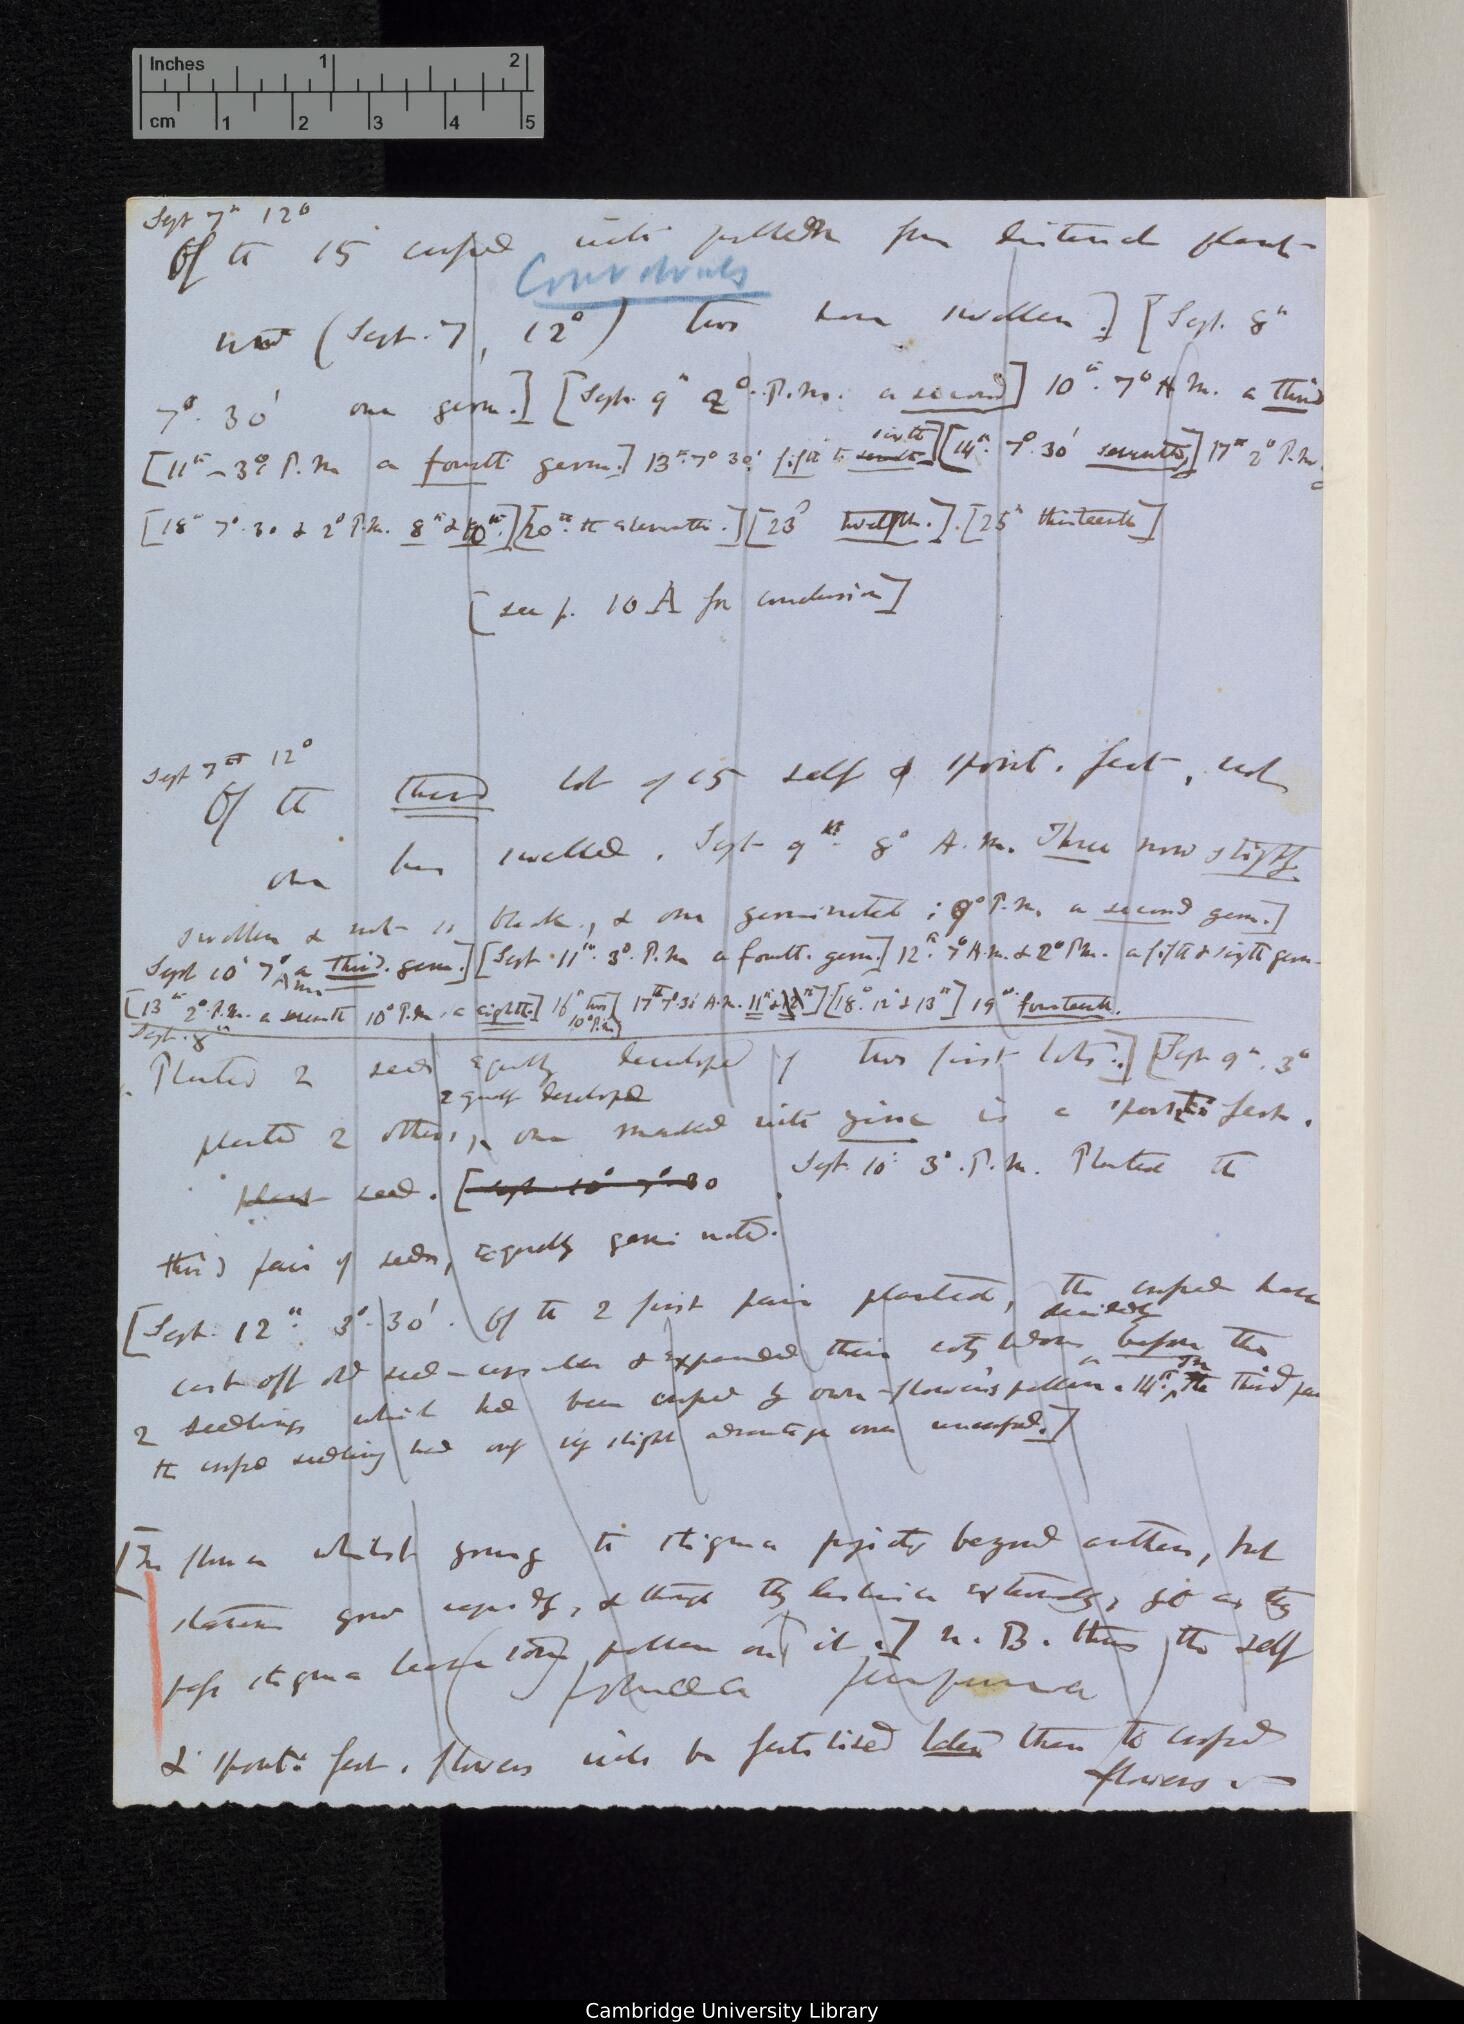 Inches 1 2
cm 1 2 3 4 5
Sept 7th 12°
Of the 15 crossed with pollen from distinct plant
Convolvulus
(Sept. 7, 12°) two have swollen.] [Sept. 8th
7°. 30' one germ.] [Sept. 9th 2° P.M. a second] 10th. 7° A.M. a third
[11th - 3° P.M a fourth germ.] 13th. 7° 30' fifth & seventh sixth] [14th. 7°. 30' seventh,] 17th 2° P.M.
[18th 7°. 30 & 2° P.M. 8th & 10th.] [20th. the eleventh.] [23d twelfth.]. [25th thirteenth]
[see p. 10 A for conclusion]
Sept 7th 12°
Of the third lot of 15 self & spont. fert, not
one has swelled. Sept 9th. 8° A.M. Three now slightly
swollen & not so black, & one germinated; 9° P.M. a second germ.]
Sept 10th 7° A.M. a third. germ.] [Sept 11th. 3°. P.M a fourth. germ.] 12th. 7° A.M. & 2° P.M. a fifth & sixth germ
[13th 2°. P.M. a seventh 10° P.M. a eighth.] 16th two 10° P.M. [17th 7°. 30' A.M. 11th & 12th] [18th. 12 & 13th] 19th. fourteenth.
Sept. 8th
Planted 2 seeds equally developed of two first lots.] [Sept 9th. 3°
planted 2 others, equally developed one marked with zinc is a spont. fert.
plant seed. [Sept 10° 7°. 30 Sept. 10th 3°. P.M. Planted the
third pair of seeds, equally germinated.
[Sept. 12th. 3°. 30'. Of the 2 first pair planted, the crossed have
cast off old seed-capsules & expanded their cotyledons decidedly before the
2 seedlings which had been crossed by own-flower's pollen. 14th. In the third pair
the crossed seedling had only very slight advantage over uncrossed.]
[In flower whilst young the stigma projects beyond anthers, but
stamens grow rapidly, & though they dehisce extrorsely, yet as they
pass stigma leave some pollen on it.] N.B. thus the self
Ipomoea purpurea
& spont. fert. flowers will be fertilised later than the crossed
flowers
Cambridge University Library